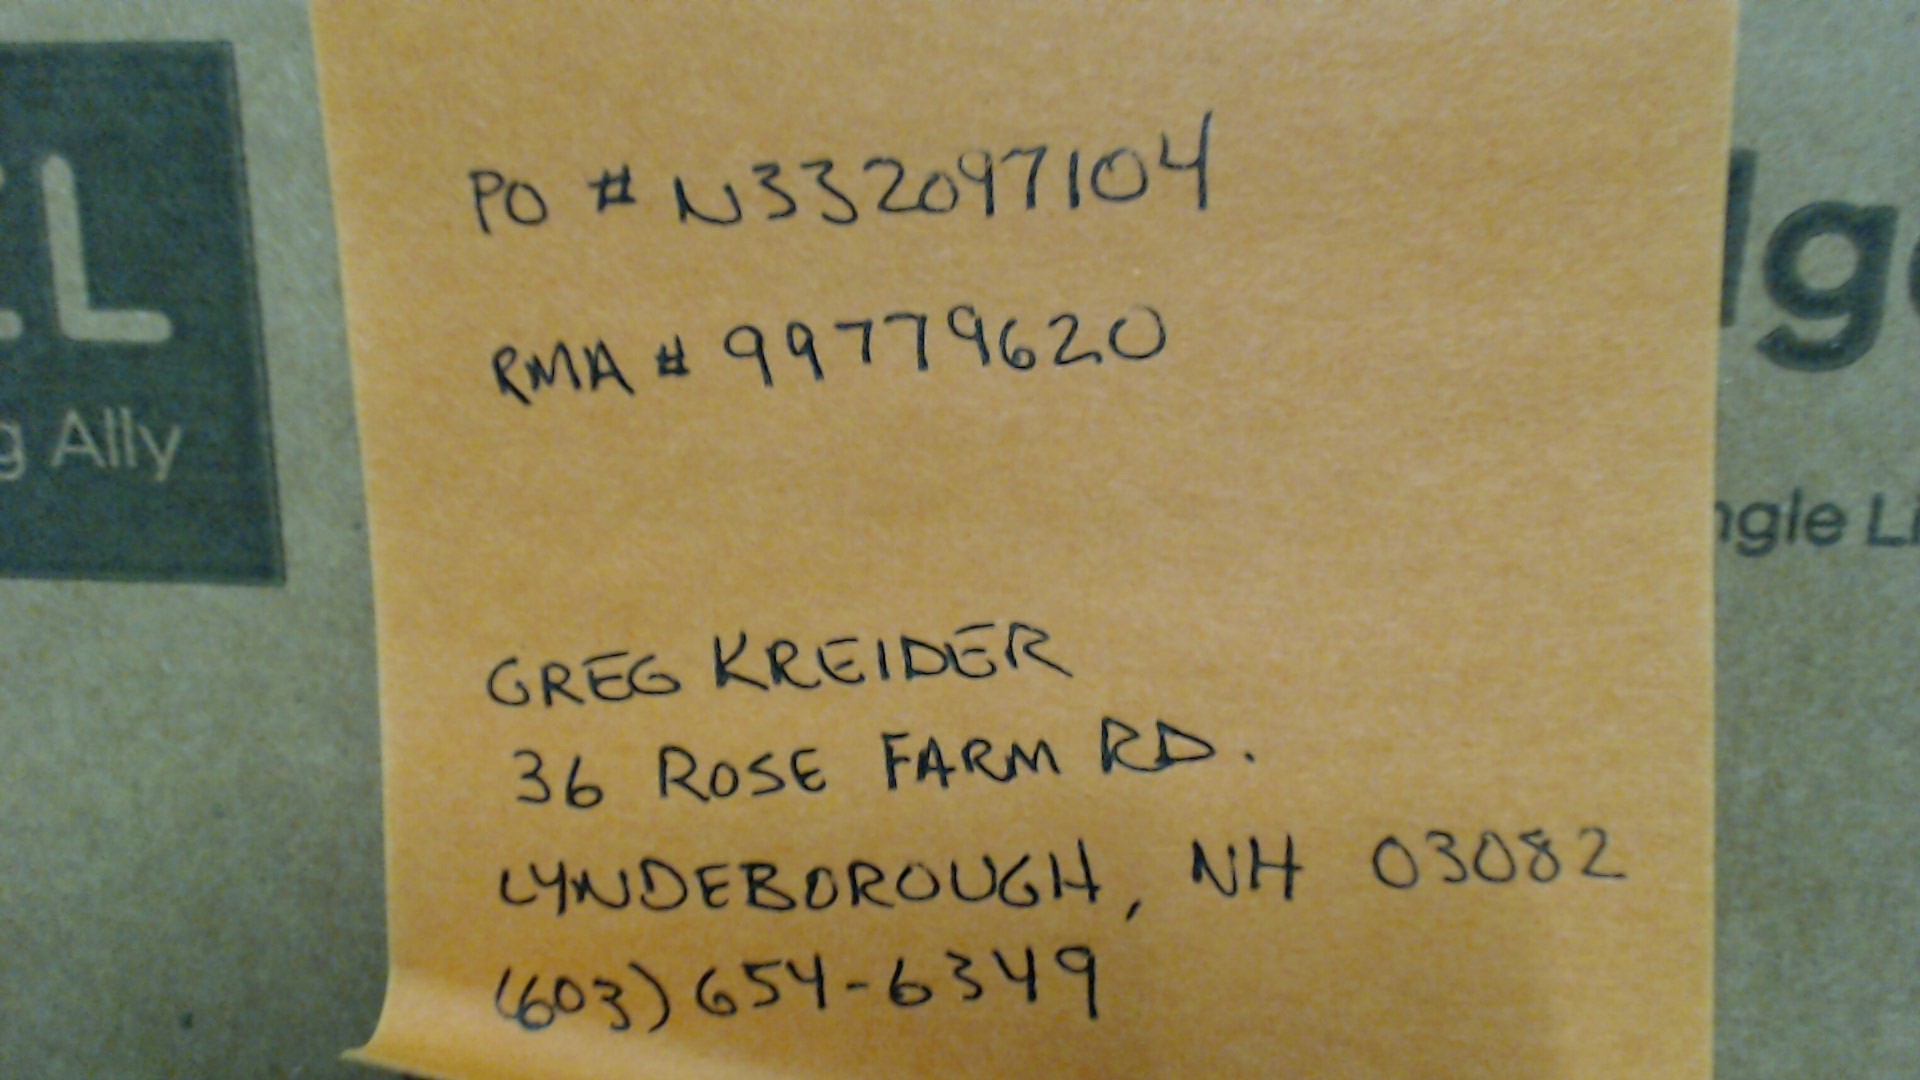 PO # N332097104
RMA # 99779620
GREG KREIDER
36 ROSE FARM RD.
LYNDEBOROUGH, NH 03082
(603) 654-6349
L
Ally